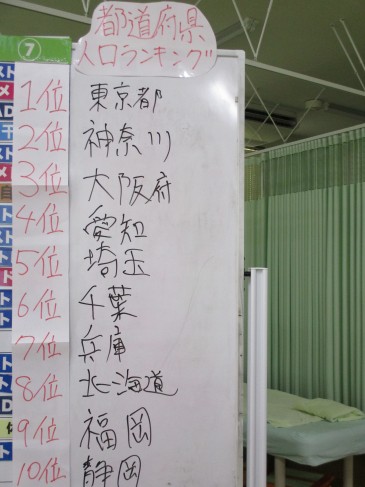 都道府県
人口ランキング
⑦
1位 東京都
2位 神奈川
3位 大阪府
4位 愛知
5位 埼玉
6位 千葉
7位 兵庫
8位 北海道
9位 福岡
10位 静岡